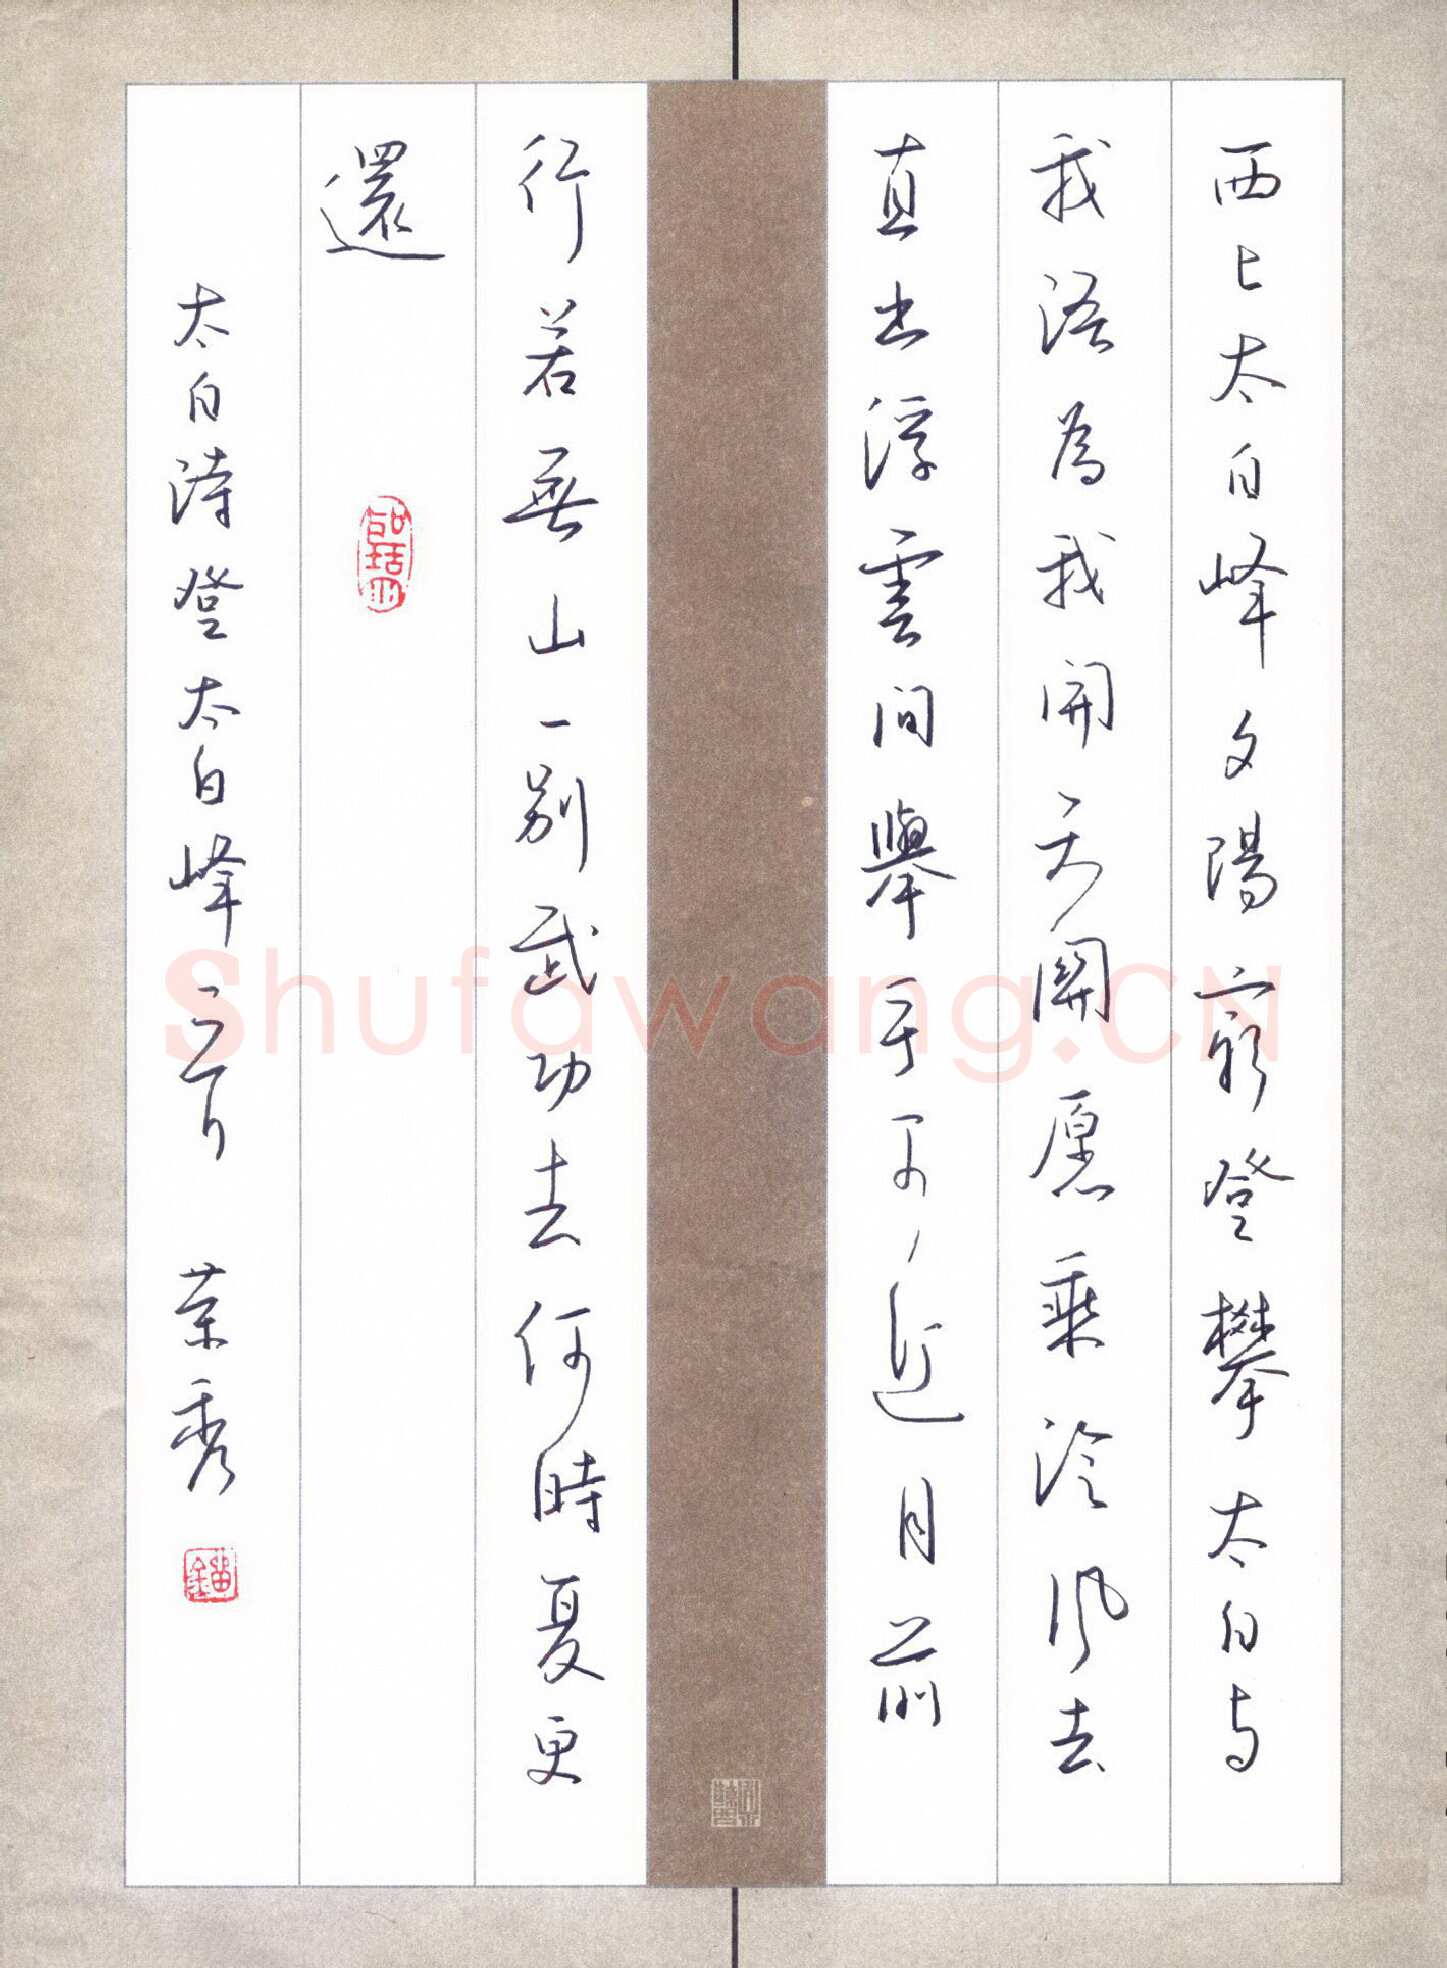 西上太白峰夕陽窮登攀太白与
我語為我開天關愿乘泠風去
直出浮雲間舉手可近月前
行若無山一別武功去何時复更
還
太白詩登太白峰 秀
Shufawang.CN